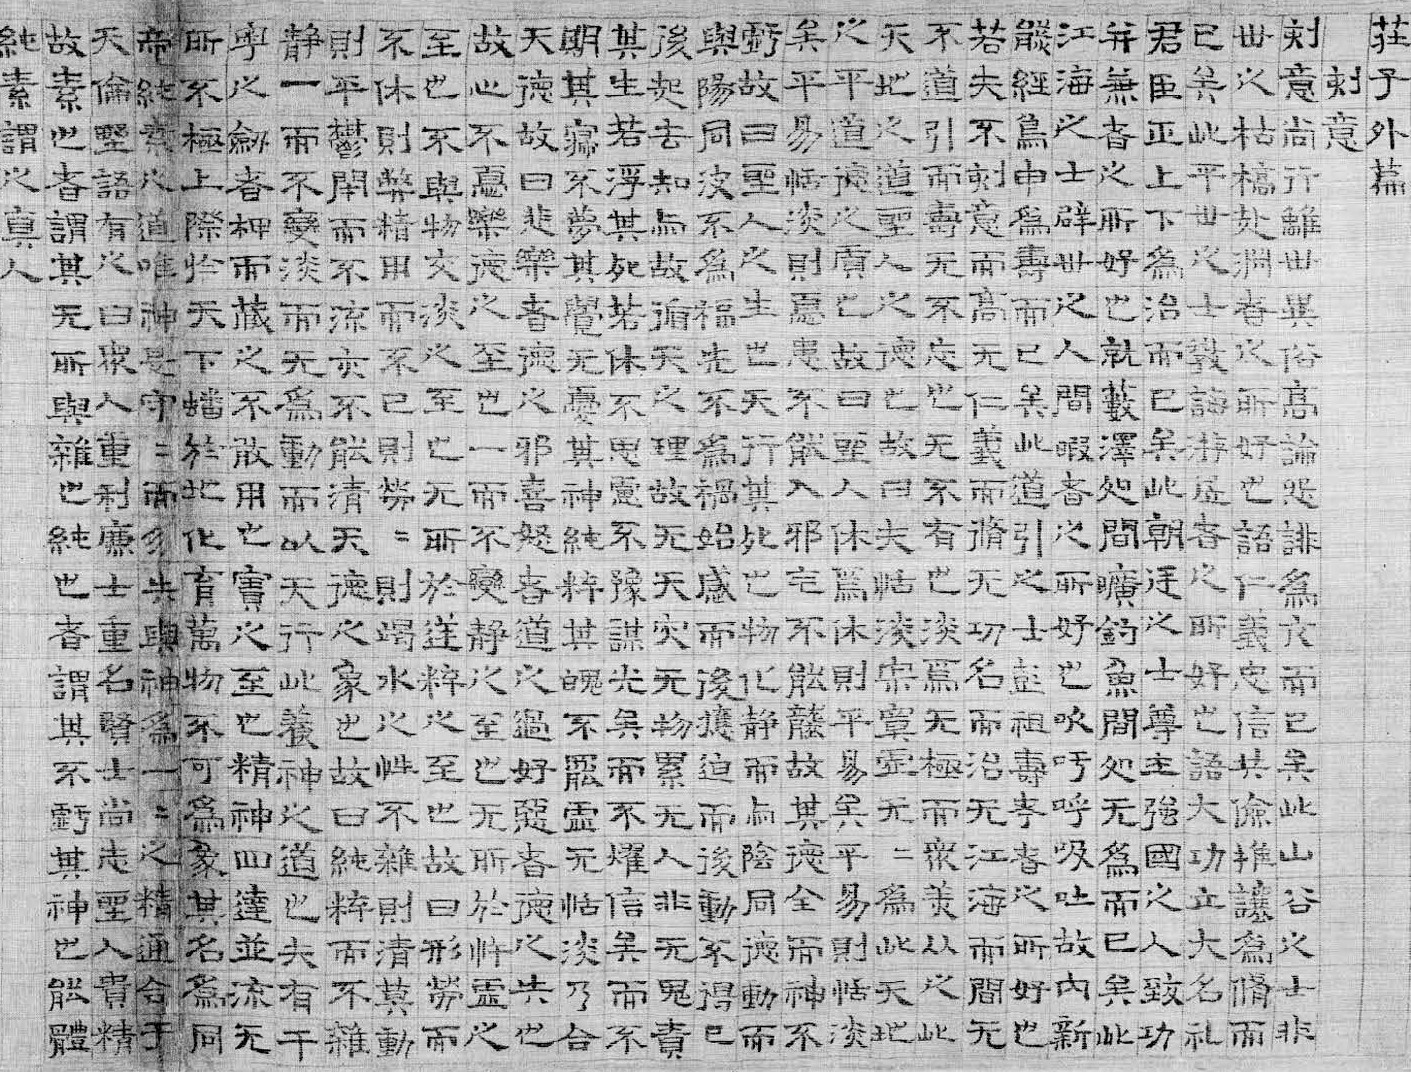 莊子外篇
刻意
刻意尚行離世異俗高論怨誹為亢而已矣此山谷之士非
世之枯槁赴淵者之所好也語仁義忠信共儉推讓為脩而
已矣此平世之士教誨游居者之所好也語大功立大名礼
君臣正上下為治而已矣此朝廷之士尊主強國之人致功
并兼者之所好也就藪澤処間曠釣魚間処无為而已矣此
江海之士辟世之人間暇者之所好也吹呴呼吸吐故内新
熊經鳥申為壽而已矣此道引之士彭祖壽考者之所好也
若夫不刻意而高无仁義而脩无功名而治无江海而間无
不道引而壽无不忘也无不有也淡焉无極而衆美从之此
天地之道聖人之德也故曰夫恬淡寂寞虛无〻為此天地
之平道德之質也故曰聖人休焉休則平易矣平易則恬淡
矣平易恬淡則憂患不能入邪气不能襲故其德全而神不
虧故曰聖人之生也天行其死也物化静而与陰同德動而
與陽同波不為福先不為禍始感而後應迫而後動不得已
後起去知与故遁天之理故无天灾无物累无人非无鬼責
其生若浮其死若休不思慮不豫謀光矣而不燿信矣而不
期其寐不夢其覺无憂其神純粹其魄不罷虛无恬淡乃合
天德故曰悲樂者德之邪喜怒者道之過好惡者德之失也
故心不憂樂德之至也一而不變静之至也无所於忤虛之
至也不與物交淡之至也无所於逆粹之至也故曰形勞而
不休則弊精用而不已則勞〻則竭水之性不雜則清莫動
則平鬱閉而不流亦不能清天德之象也故曰純粹而不雜
静一而不變淡而无為動而以天行此養神之道也夫有干
之劒者柙而藏之不敢用也寶之至也精神四達並流无
所不極上際於天下蟠於地化育萬物不可為象其名為同
帝純素之道唯神是守〻而勿失與神為一〻之精通合于
天倫野語有之曰衆人重利廉士重名賢士尚志聖人貴精
故素也者謂其无所與雜也純也者謂其不虧其神也能體
純素謂之真人